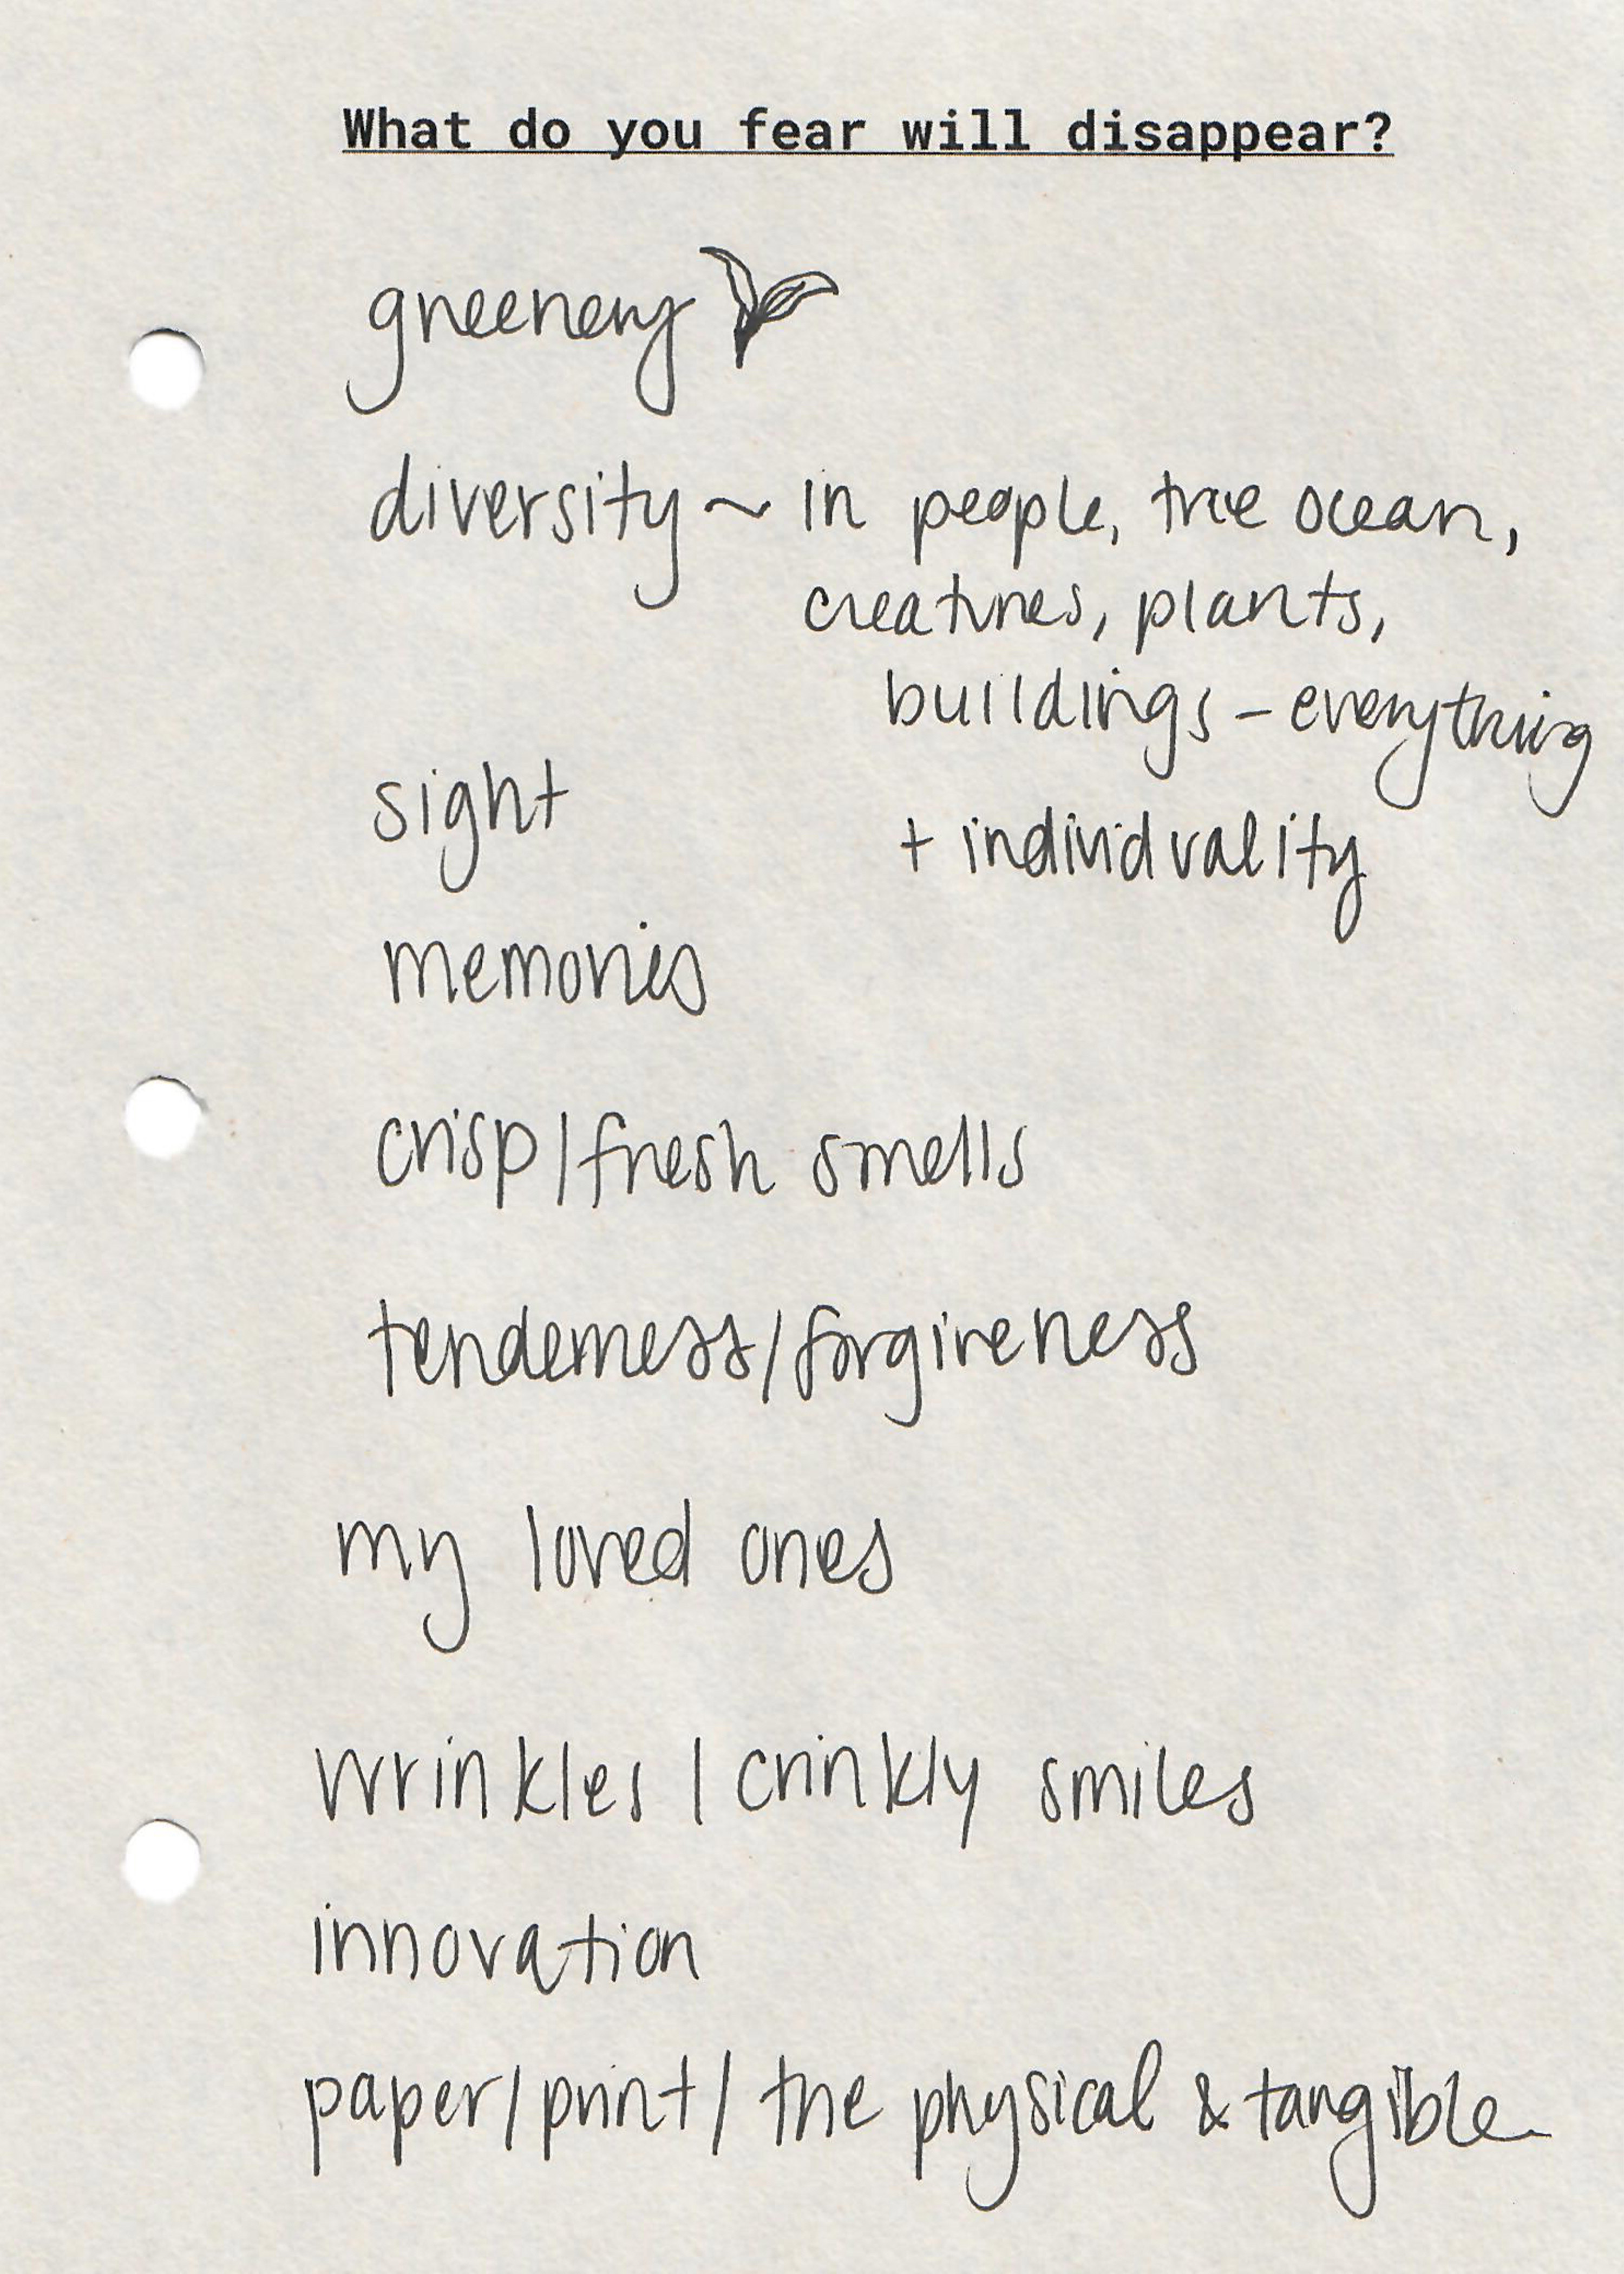 What do you fear will disappear?
greenery
diversity ~ in people, the ocean,
creatures, plants,
buildings - everything
+ individuality
sight
memories
crisp/fresh smells
tenderness/forgiveness
my loved ones
wrinkles / crinkly smiles
innovation
paper/print/ the physical & tangible